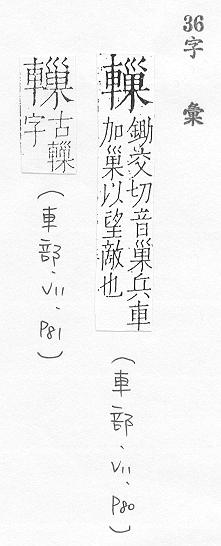 36字 彙
轈
鋤交切音巢兵車
加巢以望敵也
(車部、V11、P80)
古轈
字
(車部、V11、P81)